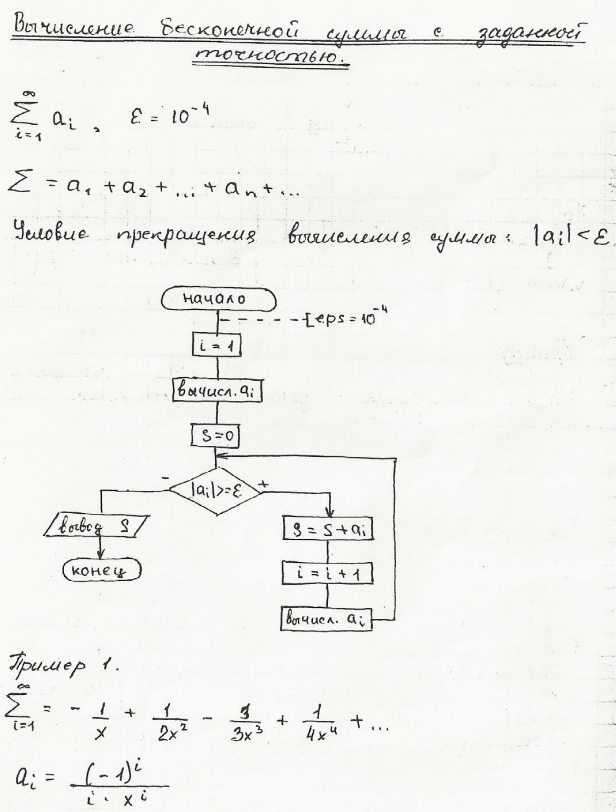 Вычисление бесконечной суммы с заданной
точностью.
∞
∑ aᵢ, ε = 10⁻⁴
i=1
∑ = a₁ + a₂ + ... + aₙ + ...
Условие прекращения вычисления суммы: |aᵢ| < ε
начало
[eps = 10⁻⁴
i = 1
вычисл. aᵢ
S=0
- |aᵢ|>=ε +
вывод S
S = S + aᵢ
конец
i = i + 1
вычисл. aᵢ
Пример 1.
∞
∑ = - 1/x + 1/2x² - 3/3x³ + 1/4x⁴ + ...
i=1
aᵢ = (-1)ⁱ / i · xⁱ